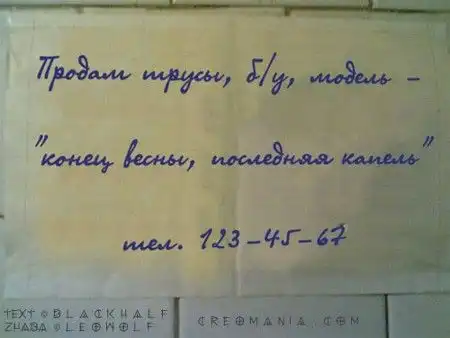 Продам трусы, б/у, модель –
"конец весны, последняя капель"
тел. 123-45-67
TEXT © BLACKHALF
ZHABA © LEOWOLF
CREOMANIA.COM